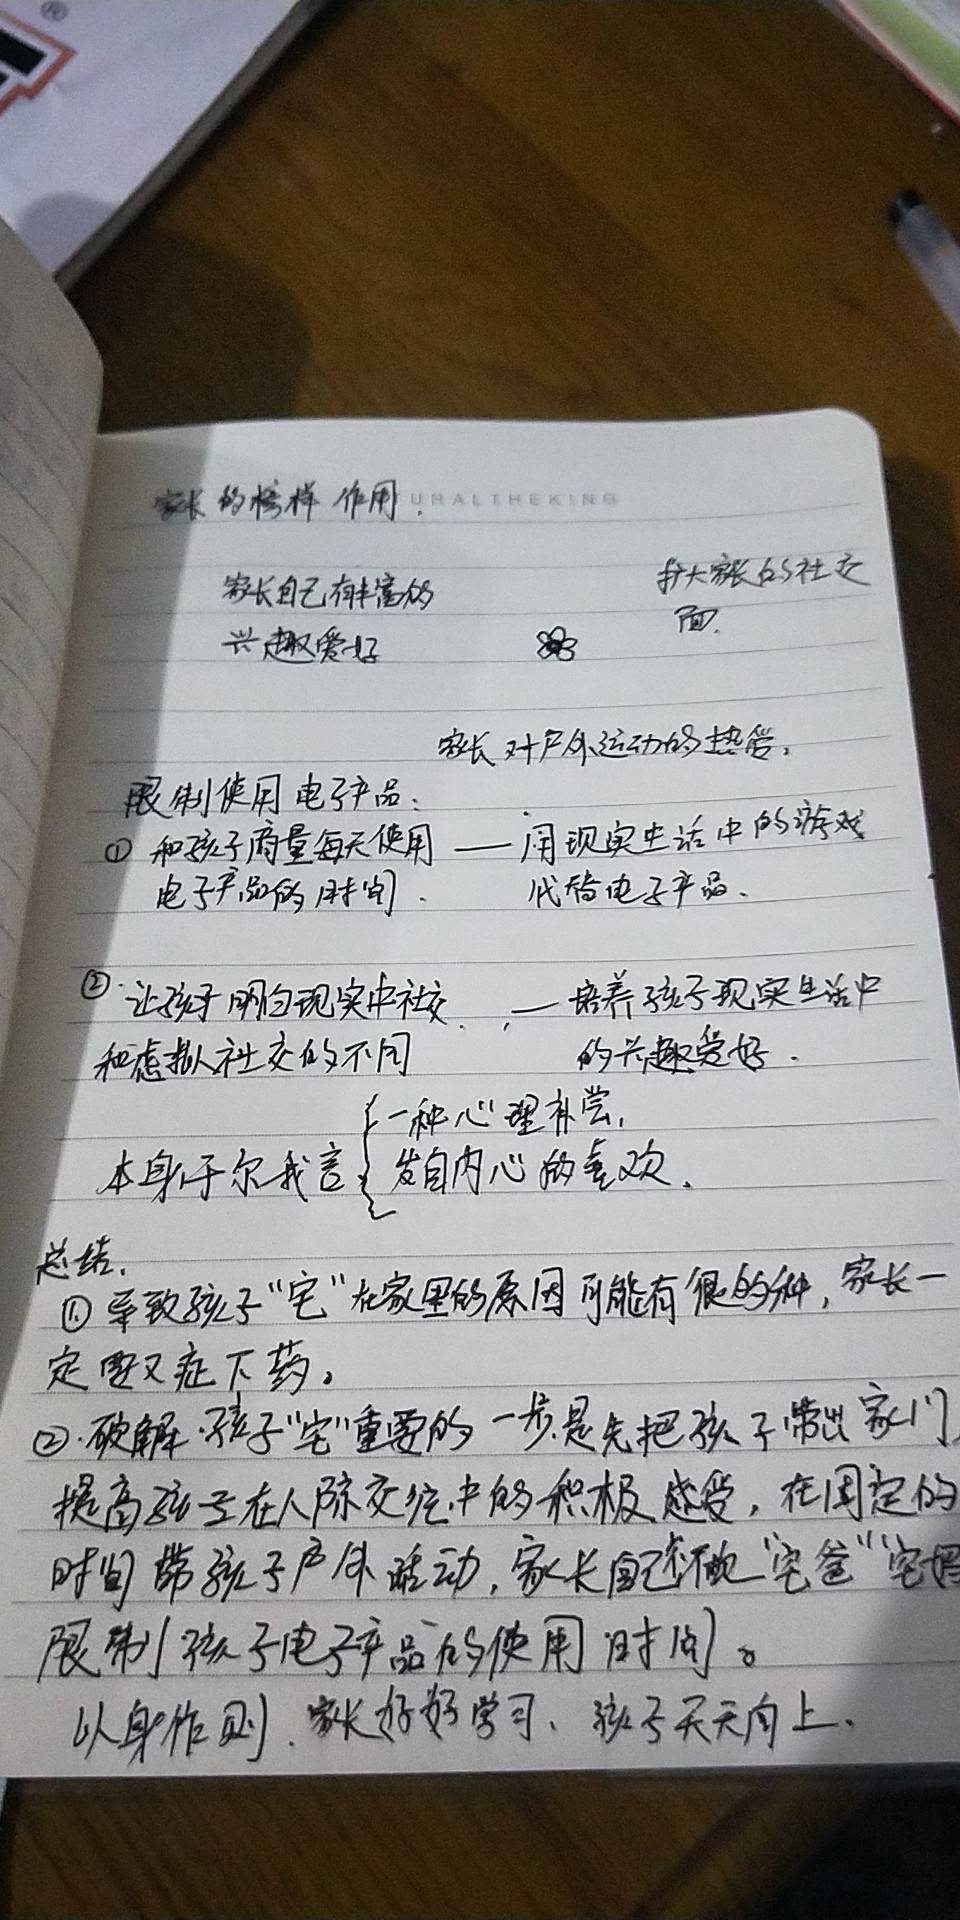 URALTHEKING
家长的榜样作用.
家长自己有丰富的
兴趣爱好
扩大家长的社交
面.
家长对户外运动的热爱.
限制使用电子产品:
① 和孩子商量每天使用 —— 用现实生活中的游戏
电子产品的时间. 代替电子产品、
② 让孩子明白现实中社交 —— 培养孩子现实生活中
和虚拟社交的不同 的兴趣爱好.
一种心理补尝,
本身 发自内心的喜欢.
总结.
① 导致孩子“宅”在家里的原因可能有很的种,家长一
定要又症下药。
②.破解孩子“宅”重要的一步是先把孩子带出家门,
提高孩子在人际交往中的积极感受,在固定的
时间带孩子户外活动,家长自己不做“宅爸”“宅妈
限制孩子电子产品的使用时间。
以身作则、家长好好学习、孩子天天向上.